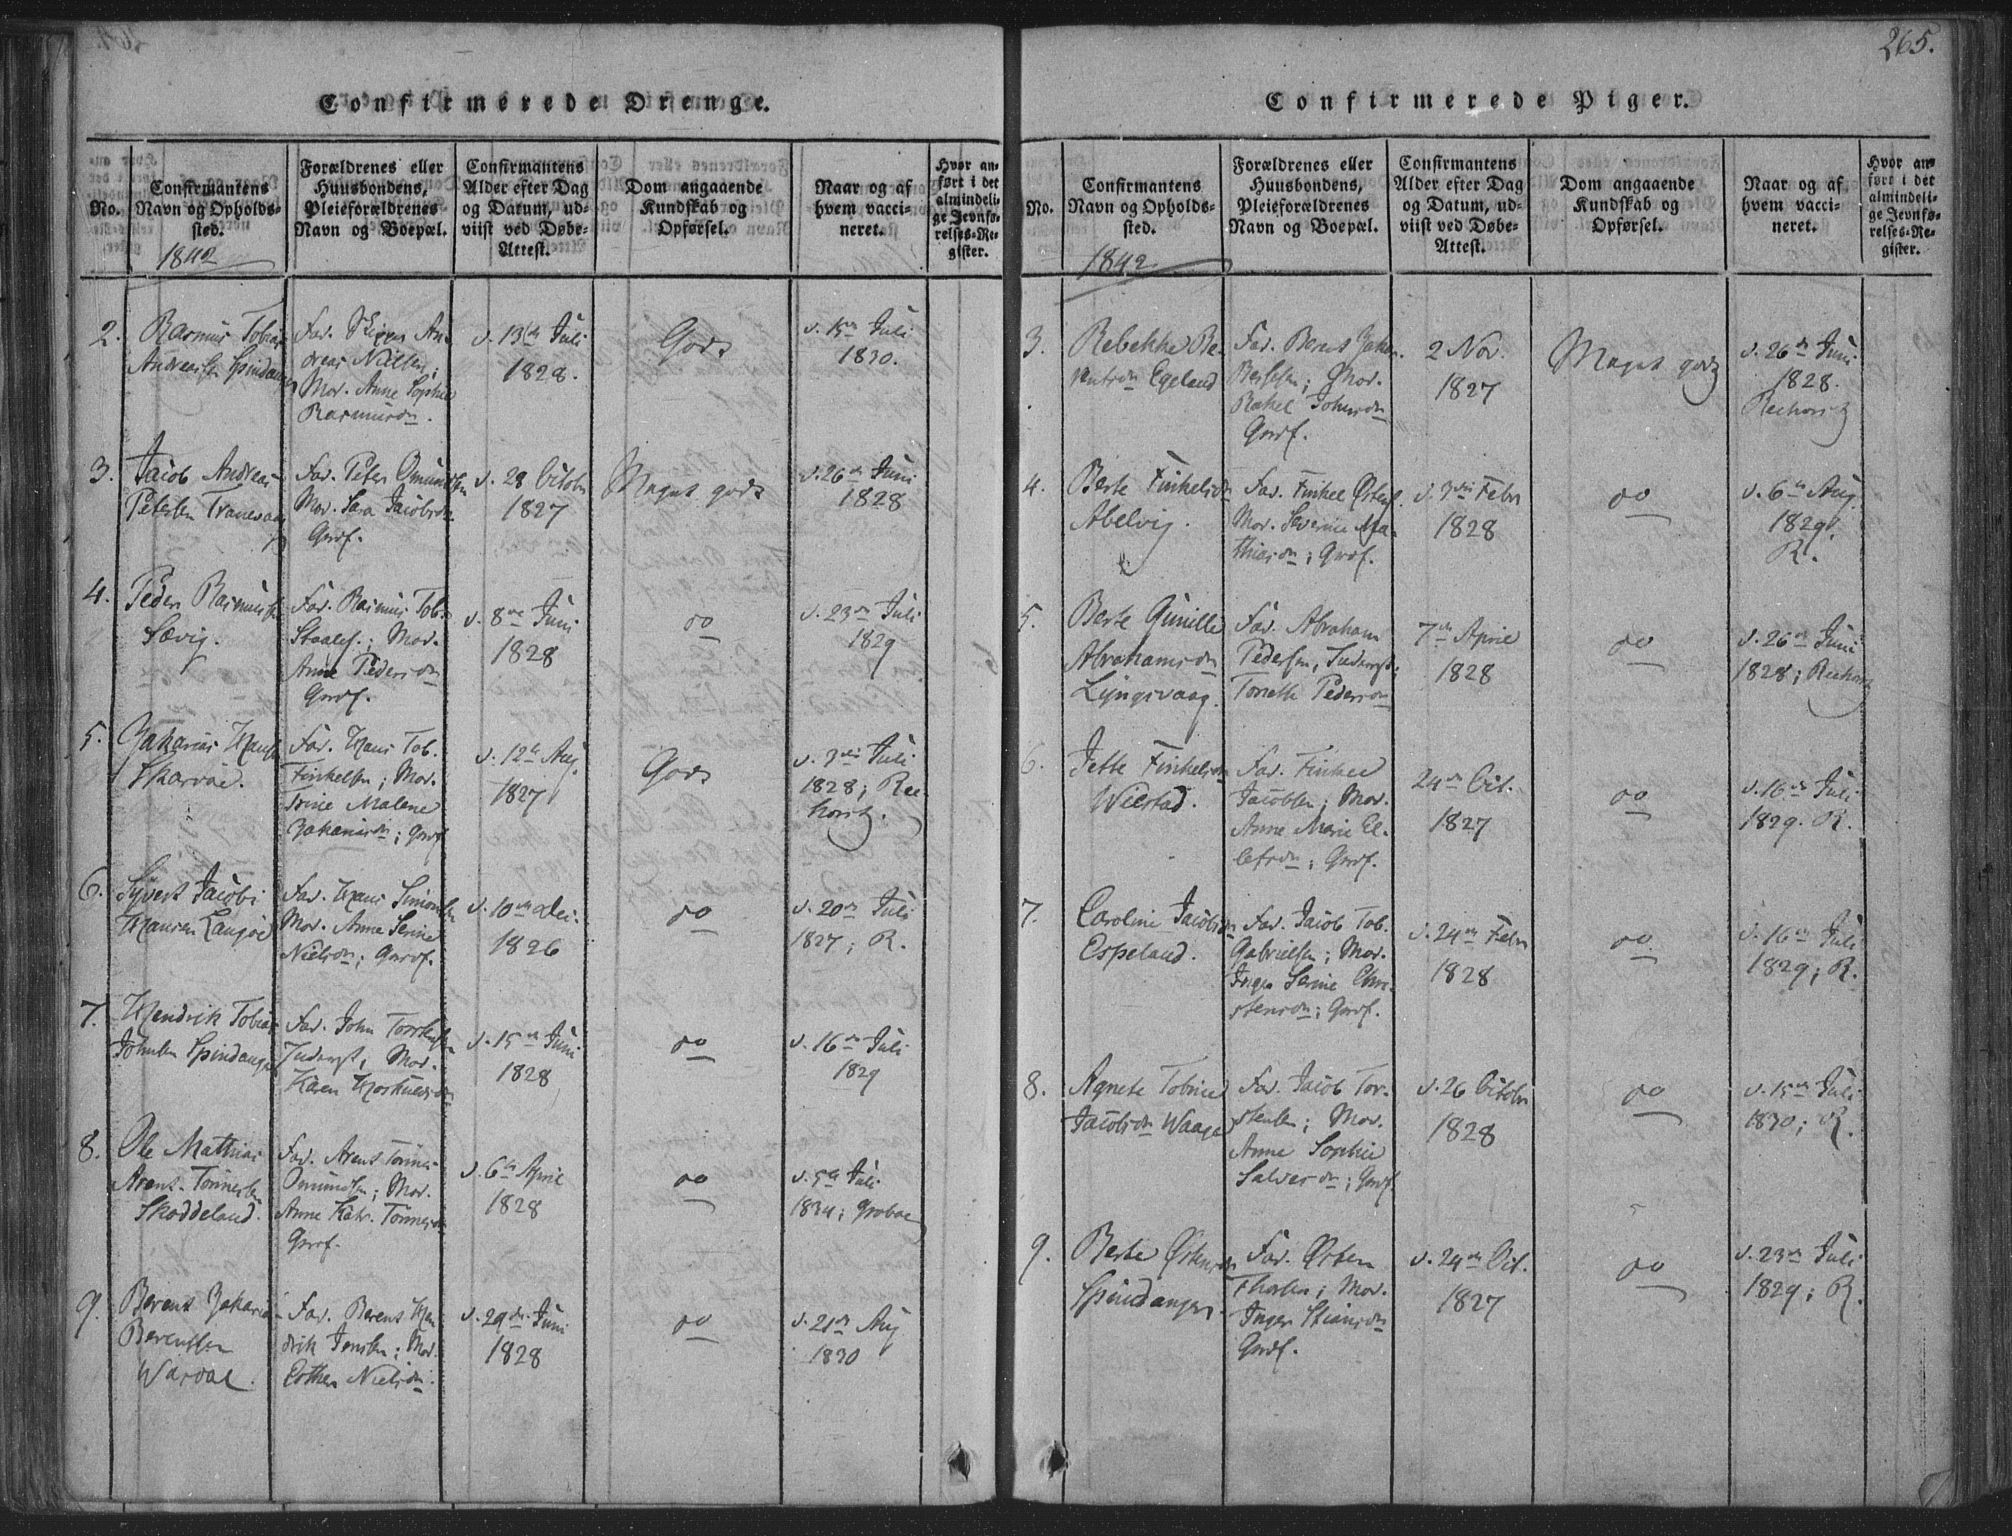 265.
Confirmerede Drenge.
No.
Confirmantens
Navn og Opholds-
sted.
1842
Forældrenes eller
Huusbondens,
Pleieforældrenes
Navn og Boepæl.
Confirmantens
Alder efter Dag
og Datum, ud-
viist ved Døbe-
Attest.
Dom angaaende
Kundskab og
Opførsel.
Naar og af
hvem vacci-
neret.
Hvor an-
ført i det
almindeli-
ge Jevnfø-
relses-Re-
gister.
2.
Rasmus Tobias
Andreassen Spindanger
Fad. Skipper An-
dreas Nilsen;
Mod. Anne Sophie
Rasmusdn.
d. 13de Juli
1828.
Gods
d. 15de Juli
1830.
3.
Jacob Andreas
Petersen Tranevaag
Fad. Peter Omundsen
Mod. Sara Jacobsdn
Grdf.
d. 28 Octobr
1827
Meget gods
d. 26de Juni
1828
4.
Peder Rasmussen
Sævig.
Fad. Rasmus Tob.
Staalef.; Mod.
Anne Pedersdn
Grdf.
d. 8de Juni
1828
do
d. 23de Juli
1829
5.
Zakarias Hansen
Skarvøe.
Fad. Hans Tob.
Finkelsen; Mod.
Trine Malene
Zakariasdn; Grdf
d. 12te Aug.
1827
Gods
d. 3die Juli
1828; Ree-
horst.
6.
Syvert Jacobi
Hansen Langøe
Fad. Hans Simonsen
Mod. Anne Serine
Nielsdn; Gaardf.
d. 10de Dec.
1826
do
d. 20de Juli
1827; R.
7.
Hendrik Tobias
Johnsen Spindanger
Fad. John Torstensen
Inderst; Mod.
Karen Hoskuldsdn
d. 15de Juni
1828
do
d. 16de Juli
1829
8.
Ole Mathias
Arent-Tønnesen
Skoddeland.
Fad. Arent Tønnes
Omundsen; Mod.
Anne Katr. Tønnesdn
Grdf.
d. 6te April
1828
do
d. 5te Juli
1834; Groboe
9.
Berent Zakarias
Berentsen
Wardal.
Fad. Berent Hen-
drik Jensen; Mod.
Esther Nielsdn.
d. 29de Juni
1828
do
d. 21de Aug
1830
Confirmerede Piger.
No.
Confirmantens
Navn og Opholds-
sted.
1842
Forældrenes eller
Huusbondens,
Pleieforældrenes
Navn og Boepæl.
Confirmantens
Alder efter Dag
og Datum, ud-
viist ved Døbe-
Attest.
Dom angaaende
Kundskab og
Opførsel.
Naar og af
hvem vacci-
neret.
Hvor an-
ført i det
almindeli-
ge Jevnfø-
relses-Re-
gister.
3.
Rebekke Be-
rentsdn Egeland
Fad. Berent Zaka.
Mod.
Rakel Johnsdn
Grdf.
2 Nov.
1827
Meget gods
d. 26de Juni
1828.
Reehorst
4.
Berte Finkelsdn
Abelvig.
Fad. Finkel Østens.
Mod. Severine Ma-
thiasdn; Grdf.
d. 3die Febr
1828
do
d. 6te Aug.
1829.
R.
5.
Berte Gunille
Abrahamsdn
Lyngsvaag.
Fad. Abraham
Pedersen, Inderst;
Torette Pedersdn
7de April
1828
do
d. 26de Juni
1828; Reehorst
6.
Jette Finkelsdn
Wilstad.
Fad. Finkel
Jacobsen; Mod.
Anne Marie El-
lefsdn; Grdf.
24de Oct.
1827
do
d. 16de Juli
1829. R.
7.
Caroline Jacobsdn
Espeland.
Fad. Jacob Tob.
Gabrielsen; Mod.
Inger Serine Chri-
stensdn; Grdf.
d. 24de Febr
1828
do
d. 16de Juli
1829; R.
8.
Agnete Tobine
Jacobsdn Waage
Fad. Jacob Tor-
stensen; Mod.
Anne Sophie
Salvesdn; Grdf.
d. 26 Octobr
1828
do
d. 15de Juli
1830; R.
9.
Berte Østensdn
Spindanger.
Fad. Østen
Thorsen; Mod.
Inger Stiansdn
Grdf.
d. 24de Oct.
1827
do
d. 23de Juli
1829; R.